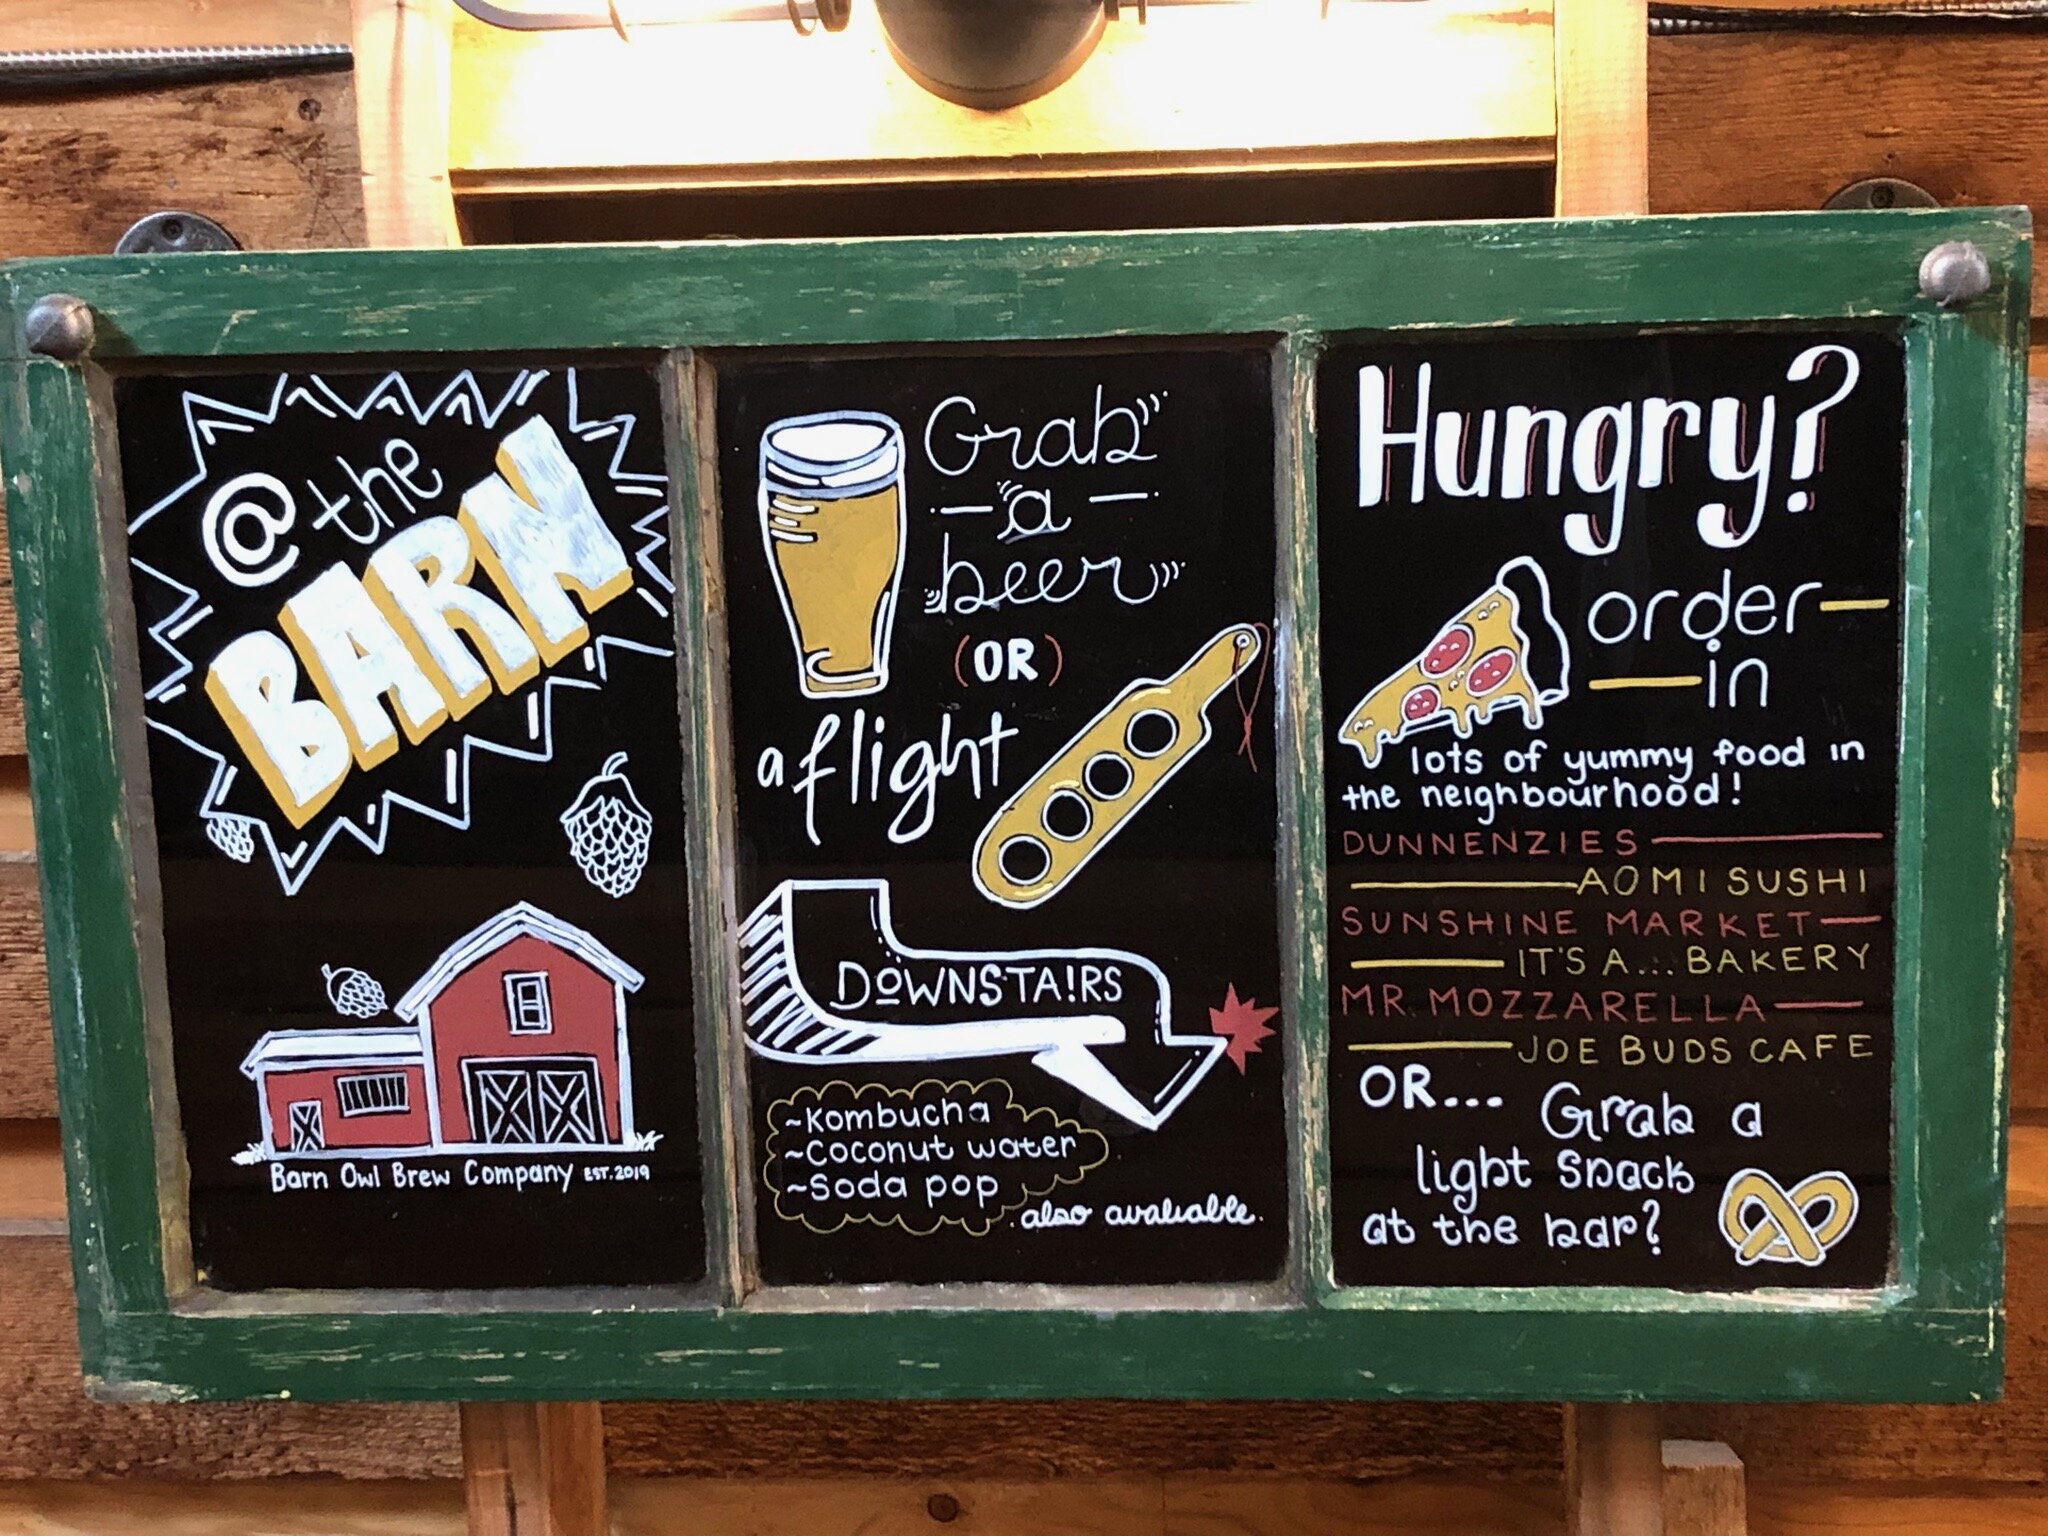 @ the
BARN
Barn Owl Brew Company EST. 2019
Grab
a
beer
(OR)
a flight
DOWNSTAIRS
~Kombucha
~Coconut water
~Soda pop
also avaliable.
Hungry?
order-
in
lots of yummy food in
the neighbourhood!
DUNNENZIES
AOMI SUSHI
SUNSHINE MARKET
IT'S A... BAKERY
MR. MOZZARELLA
JOE BUDS CAFE
OR... Grab a
light snack
at the bar?